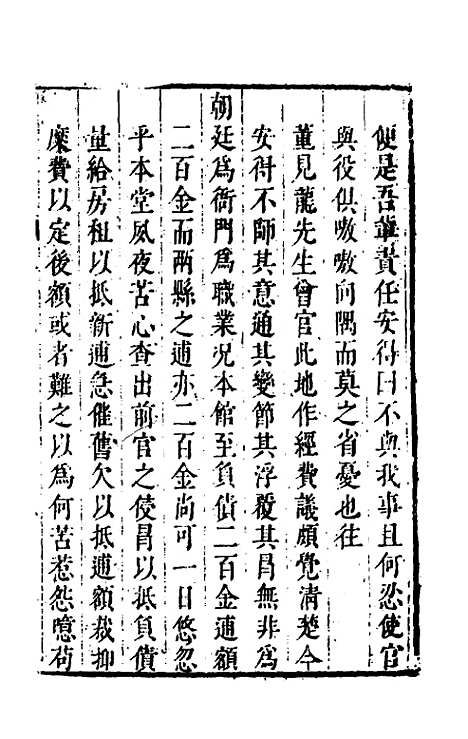 便是吾輩責任安得曰不與我事且何忍使官
與役俱嗷嗷向隅而莫之省憂也往
董見龍先生曾官此地作經費議頗覺清楚今
安得不師其意通其變節其浮覆其冒無非爲
朝廷爲衙門爲職業况本館至負債二百金逋額
二百金而兩縣之逋亦二百金尚可一日悠忽
乎本堂夙夜苦心查出前官之侵冒以抵負債
量給房租以抵新逋急催舊欠以抵逋額裁抑
糜費以定後額或者難之以爲何苦惹怨噫苟